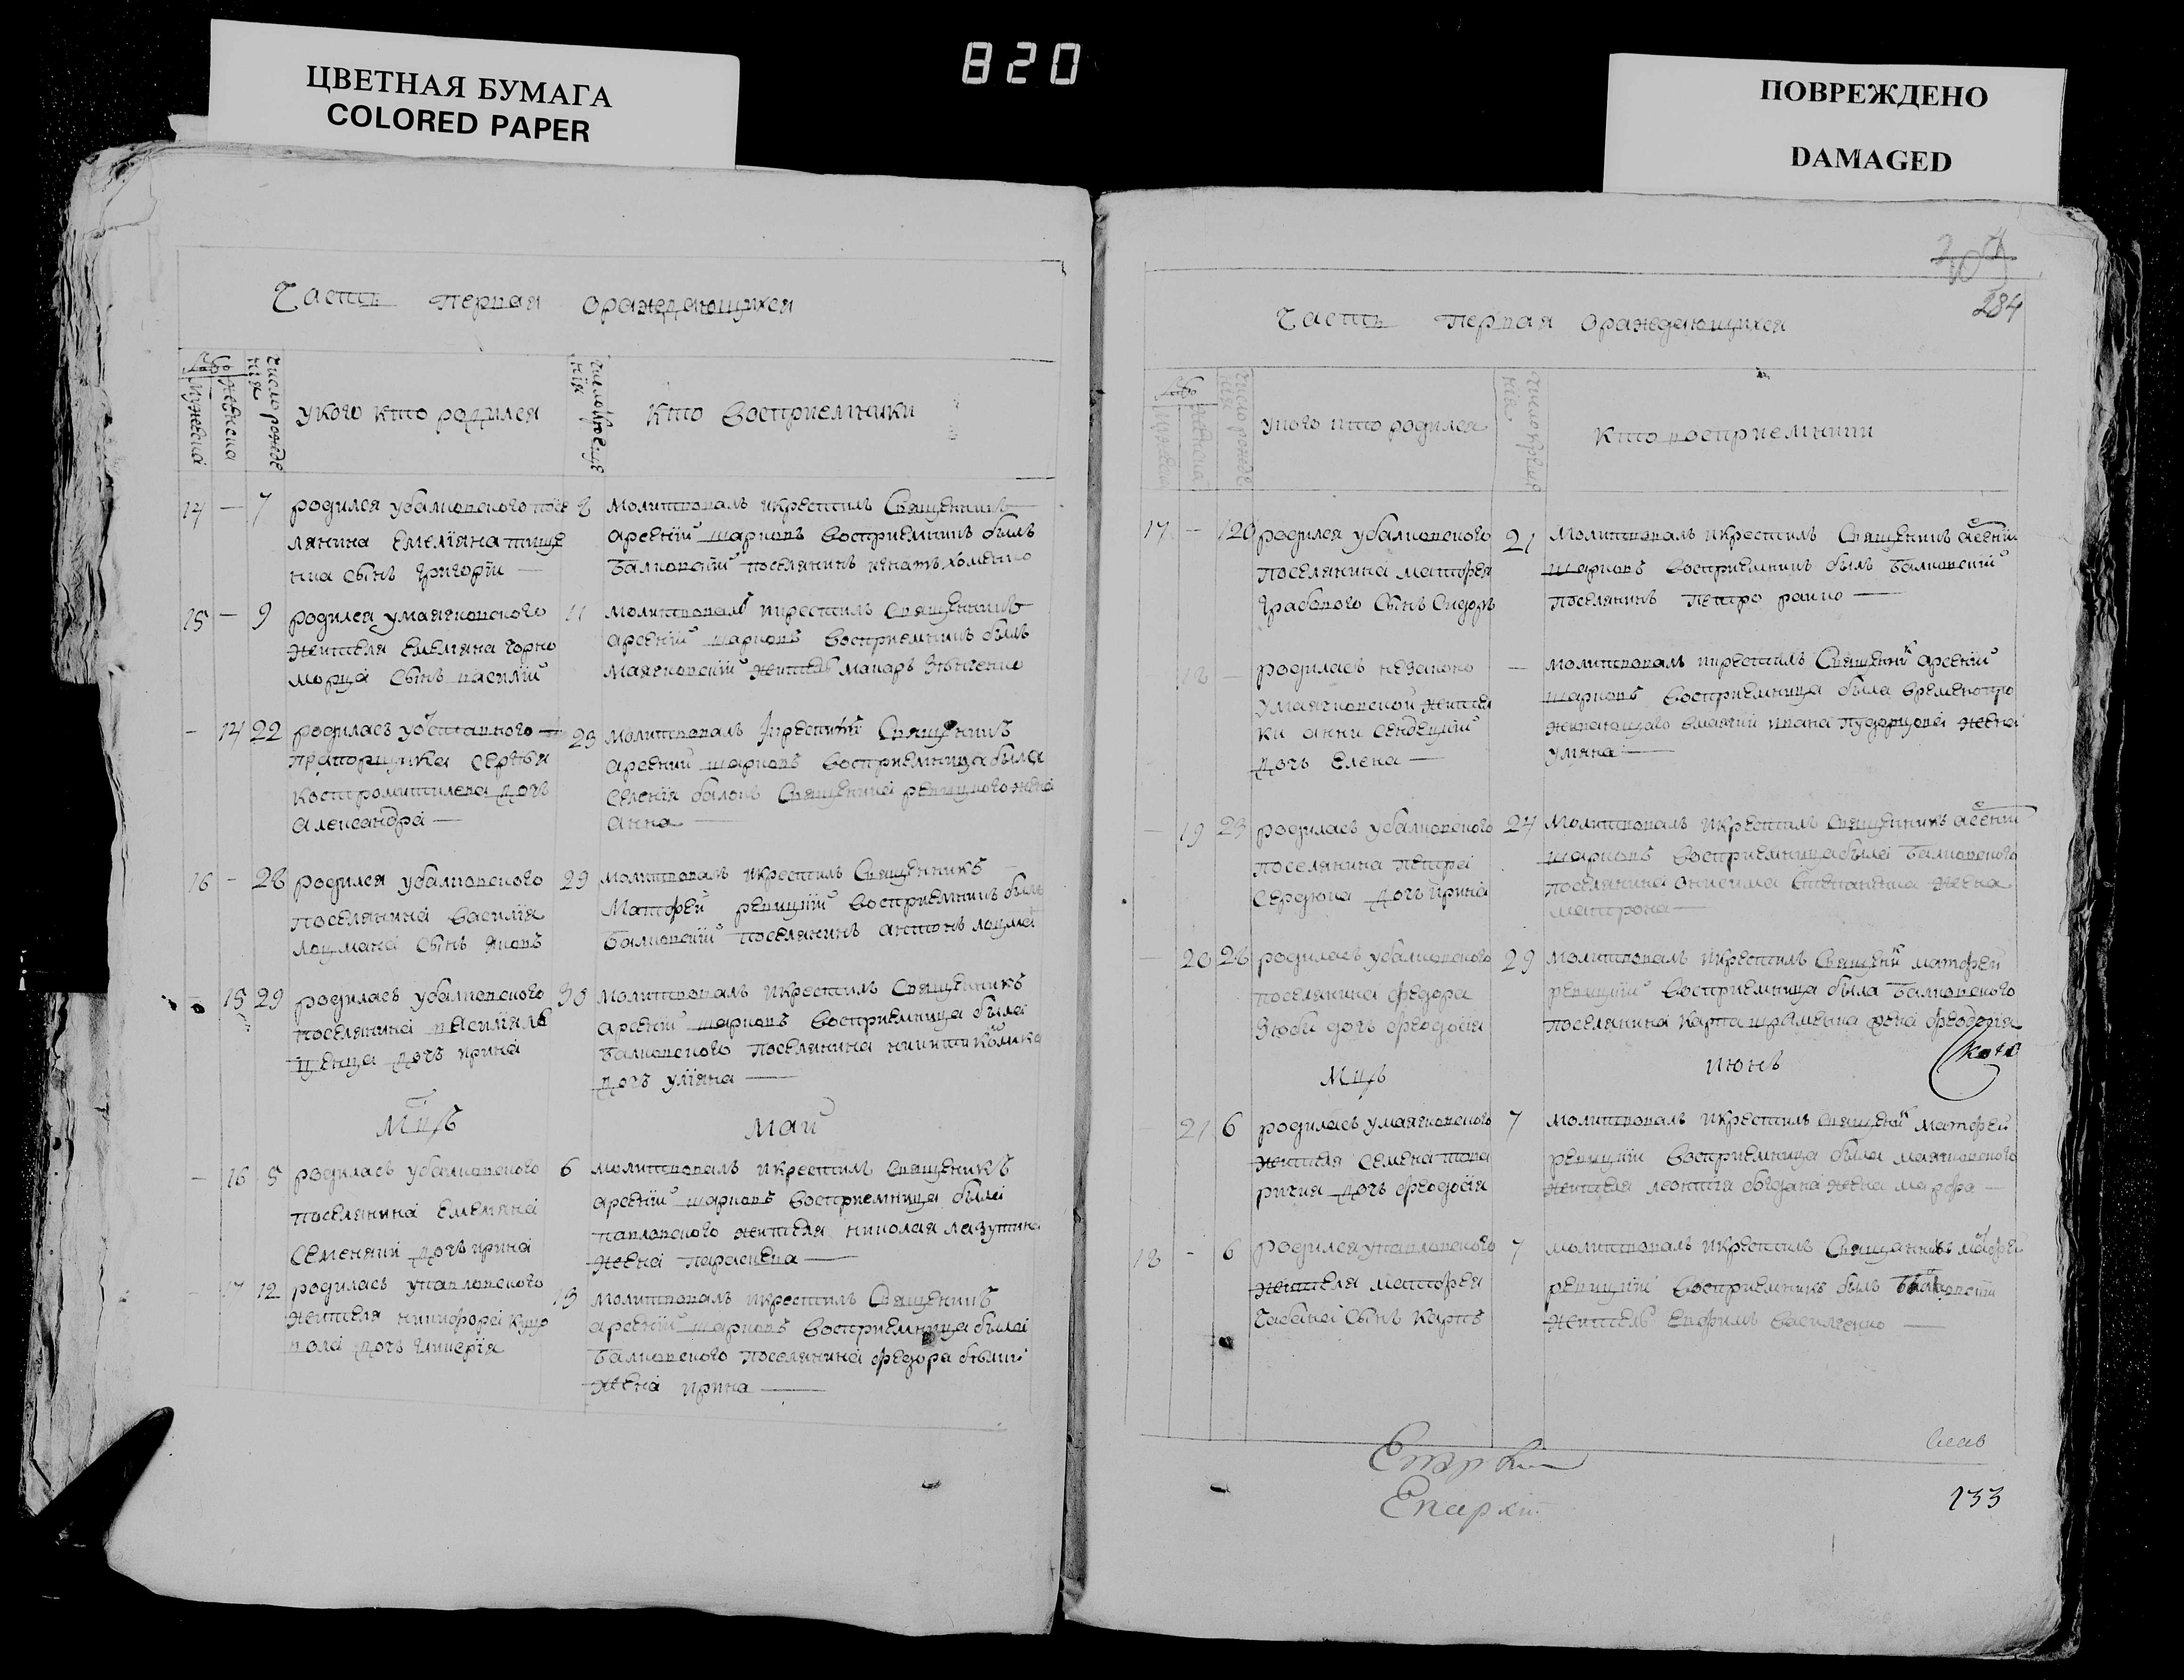 ЦВЕТНАЯ БУМАГА
COLORED PAPER
820
ПОВРЕЖДЕНО
DAMAGED
Часть первая ораждающихся
Мужеска
Женска
Число рожде
нїя
Укого кто родился
Число креще
нїя
Кто восприемники
14 — 7 родился убалковского посе
лянина Емелїана
сынъ Григорїи —
8 молитвовалъ икрестилъ Священникъ
Арсенїй Шарковъ восприемникъ былъ
балковскїй поселянинъ Игнатъ Хоменко
15 — 9 родился умаячковского
жителя Емелїана Чорно
морца сынъ василїй
11 молитвовалъ икрестилъ Священникъ
Арсенїй Шарковъ восприемникъ былъ
Маячковскїй житель Макаръ
— 14 22 родилась уотставного
прапорщика Сергѣя
дочь
Александра —
23 молитвовалъ икрестилъ Священникъ
Арсенїй Шарковъ восприемница была
селенїя балокъ Священника Ревицкого жена
Анна —
16 — 28 родился убалковского
поселянина Василїя
Лоцмана сынъ Яковъ
29 молитвовалъ икрестилъ Священникъ
Матфей Ревицкїй восприемникъ былъ
балковскїй поселянинъ Антонъ Лоцма
— 15 29 родилась убалковского
поселянина василїя
дочь ирина
30 молитвовалъ икрестилъ Священникъ
Арсенїй Шарковъ восприемница была
балковского поселянина
дочь Улїяна —
Мцъ
Май
— 16 5 родилась убалковского
поселянина Емелїана
Семеняки дочь ирина
6 молитвовалъ икрестилъ Священикъ
Арсенїй Шарковъ восприемница была
павловского жителя николая Лазутина
жена параскева —
— 17 12 родилась упавловского
жителя никифора
дочь гликерїя
13 молитвовалъ икрестилъ Священникъ
Арсенїй Шарковъ восприемница была
балковского поселянина федора
жена ирина —
284
Часть первая ораждающихся
Мужеска
Женска
Число рожде
нїя
Укого кто родился
Число креще
нїя
Кто восприемники
17 — 20 родился убалковского
поселянина матфея
Грабового сынъ Сидоръ
21 молитвовалъ икрестилъ Священникъ Асенїй
Шарковъ восприемникъ былъ балковскїй
поселянинъ петро —
18 родилась незаконо
умаячковской жител
ки анни
дочь Елена —
— молитвовалъ икрестилъ Священий Арсенїй
Шарковъ восприемница была временопро
живающаго вмаячки ивана жена
Улїяна —
— 19 23 родилась убалковского
поселянина петра
Сердюка дочь ирина
24 молитвовалъ икрестилъ Священникъ Асенїй
Шарковъ восприемница была балковского
поселянина Онисима жена
матрона —
— 20 28 родилась убалковского
поселянина федора
Зюби дочь феодосїя
29 молитвовалъ икрестилъ Священий матфей
Ревицкїй восприемница была балковского
поселянина Карпа жена феодосїя
Мцъ
июнь
21 6 родилась умаячковского
жителя Семена
дочь феодосїя
7 молитвовалъ икрестилъ Священий матфей
Ревицкїй восприемница была маячковского
жителя леонтїя жена марфа —
18 — 6 родился упавловского
жителя матфея
Чабана сынъ Карпъ
7 молитвовалъ икрестилъ Священникъ матфей
Ревицкїй восприемникъ былъ
житель Евфимъ Василенко —
Епархїи
133